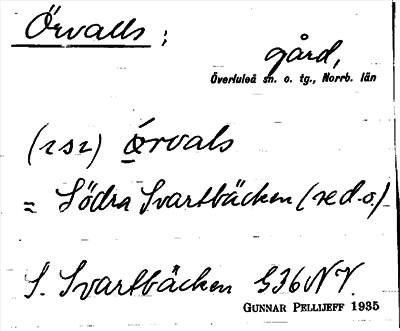 Örvalls ;
gård,
Överluleå sn. o. tg., Norrb. län
(252) Örvals
= Södra Svartbäcken (se d.o.)
S. Svartbäcken S36NV.
GUNNAR PELLIJEFF 1935